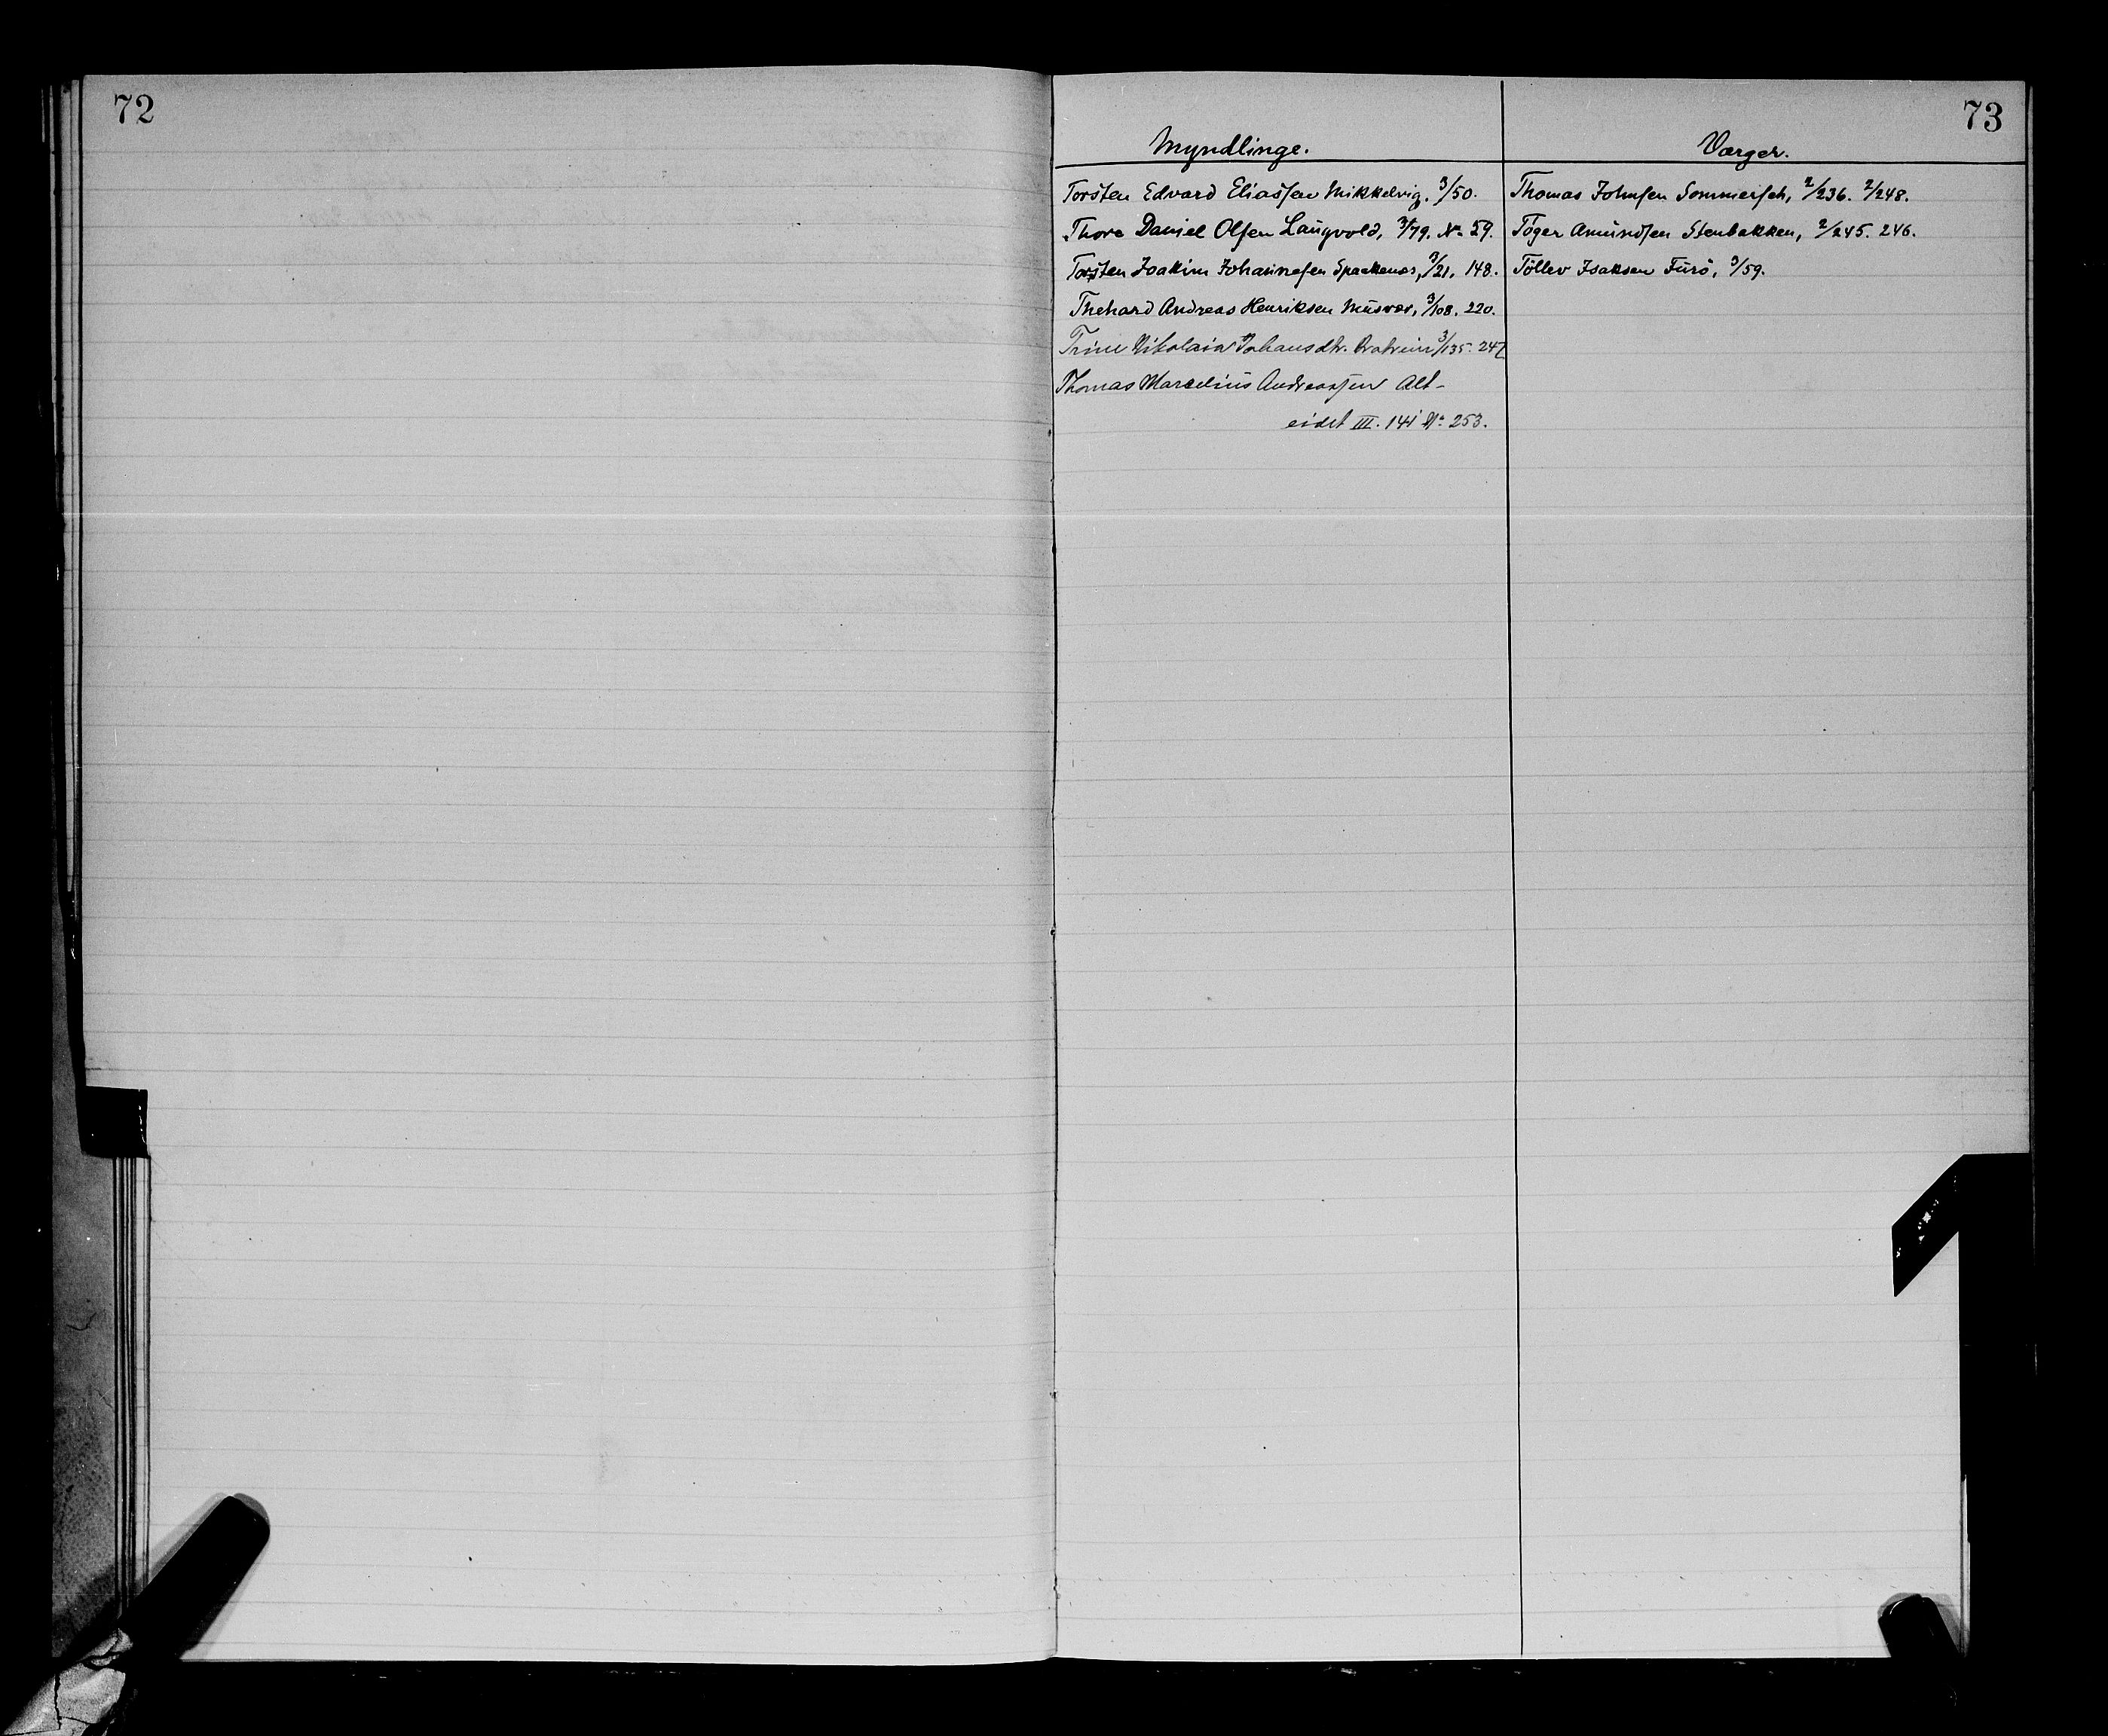 72
73
Myndlinge.
Værger.
Torsten Edvard Eliassen Mikkelvig. 3/50.
Thore Daniel Olsen Laugvold, 3/79. No. 59.
Torsten Joakim Johannesen Spaakenæs, 3/21, 148.
Thehard Andreas Henriksen Musvær, 3/108. 220.
Trine Nikolaia Johansdtr. 3/135. 247
Thomas Marselius Andreassen Alt-
eidet III. 141 No. 253.
Thomas Johnsen Sommerseth, 2/236. 2/248.
Töger Amundsen Stenbakken, 2/245. 246.
Töllev Isaksen Furö, 3/59.